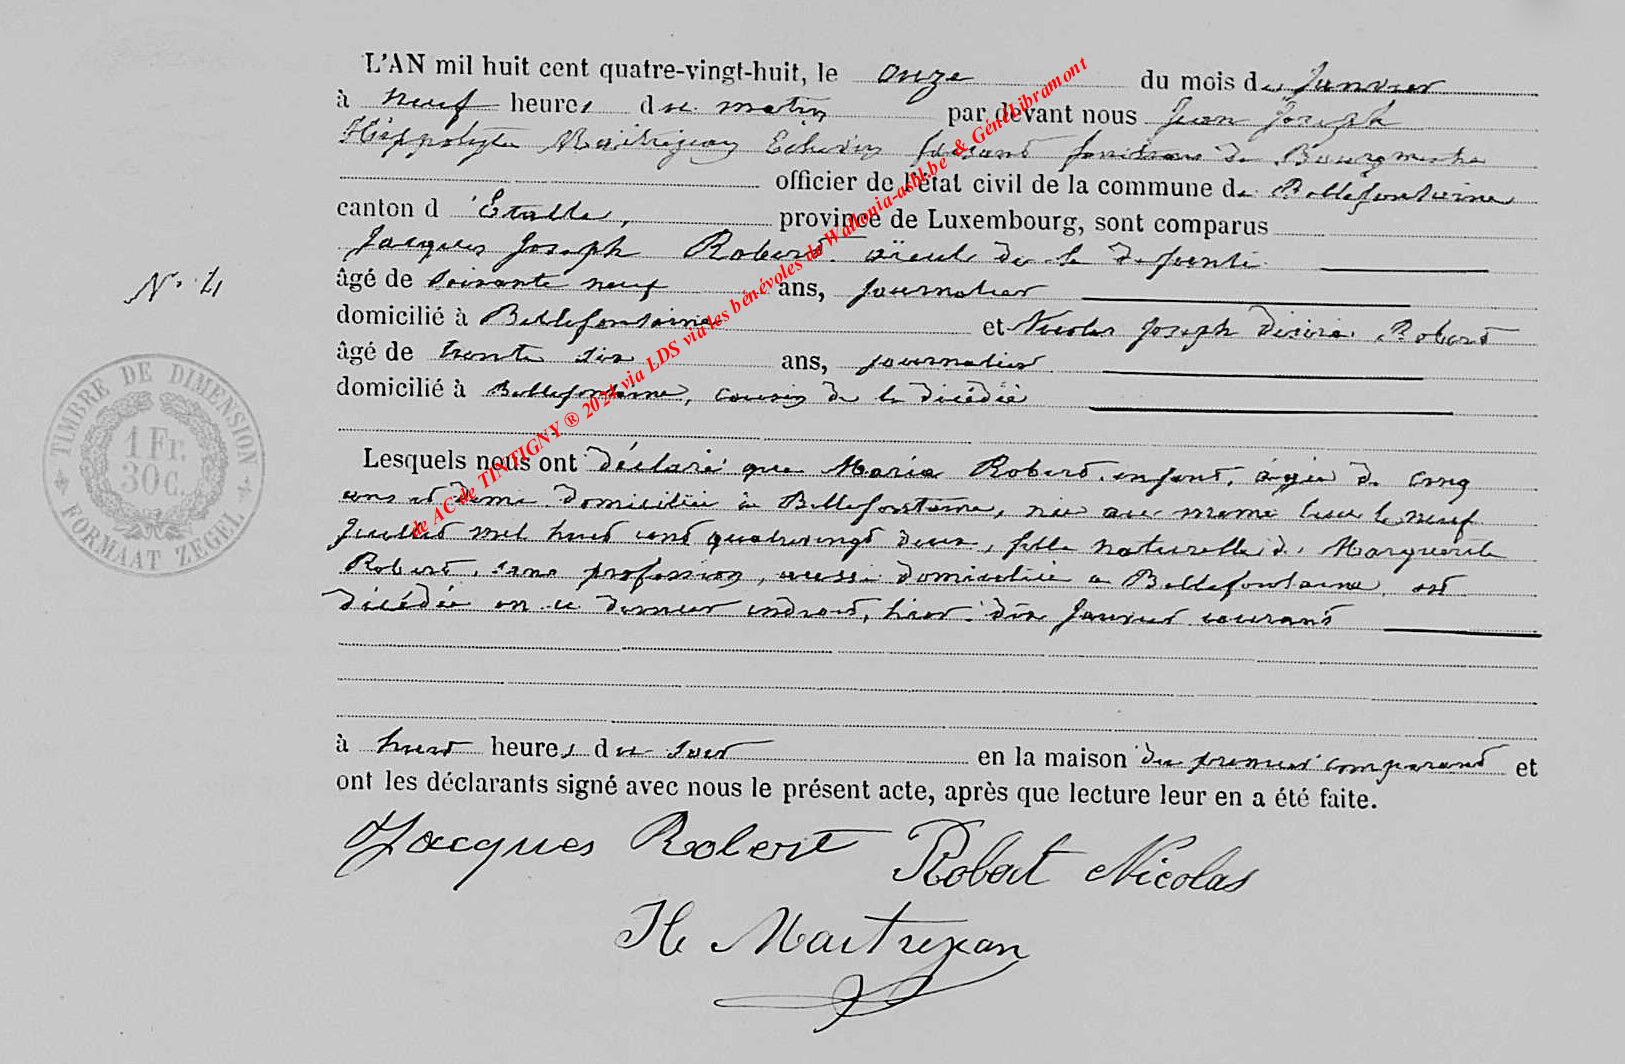 L'AN mil huit cent quatre-vingt-huit, le onze du mois de Janvier
à neuf heures du matin par devant nous Jean Joseph
Hippolyte Maitrejean Echevin faisant fonctions de Bourgmestre
officier de l'état civil de la commune de Bellefontaine
canton d'Etalle, province de Luxembourg, sont comparus
Jacques Joseph Robert aïeul de la défunte
N° 4
âgé de soixante neuf ans, journalier
domicilié à Bellefontaine et Nicolas Joseph Désiré Robert
âgé de trente six ans, journalier
domicilié à Bellefontaine, cousin de la décédée
TIMBRE DE DIMENSION
1 Fr.
30 C.
FORMAAT ZEGEL
Lesquels nous ont déclaré que Maria Robert, enfant, âgée de cinq
ans et demi domiciliée à Bellefontaine, née au même lieu le neuf
Juillet mil huit cent quatrevingt deux, fille naturelle de Marguerite
Robert, sans profession, aussi domiciliée à Bellefontaine, est
décédée en ce dernier endroit, hier dix Janvier courant
à huit heures du soir en la maison du premier comparant et
ont les déclarants signé avec nous le présent acte, après que lecture leur en a été faite.
Jacques Robert Robert Nicolas
H Maitrejean
de AC de TINTIGNY ® 2024 via LDS via les bénévoles de Wallonia-asbl.be & GénéLibramont